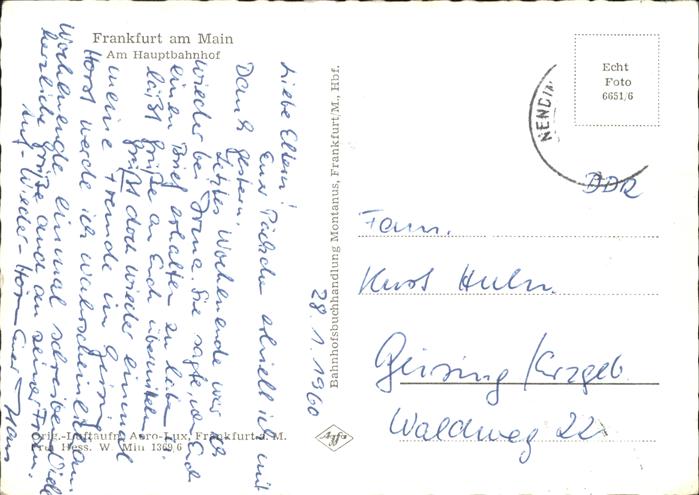 Frankfurt am Main
Am Hauptbahnhof
Liebe Eltern!
Euer Päckchen erhielt ich mit
Dank gestern.
Letztes Wochenende war ich
wieder bei Sie sagte, von Euch
einen Brief erhalten zu haben.
läßt Grüße an Euch übermitteln.
Grüßt doch wieder einmal
meine Freunde in Geising
Horst werde ich wahrscheinlich am
Wochenende einmal schreiben. Viele
herzliche Grüße auch an seine
Auf-Wieder-Hören Euer Hans
28. 1. 1960
Bahnhofsbuchhandlung Montanus, Frankfurt/M., Hbf.
Echt
Foto
6651/6
NENDIN
DDR
Fam.
Kurt
Geising/Erzgeb.
Waldweg 22
Orig.-Luftaufn. Aero-Lux, Frankfurt a. M.
Hess. W. Min 1369/6
Agfa